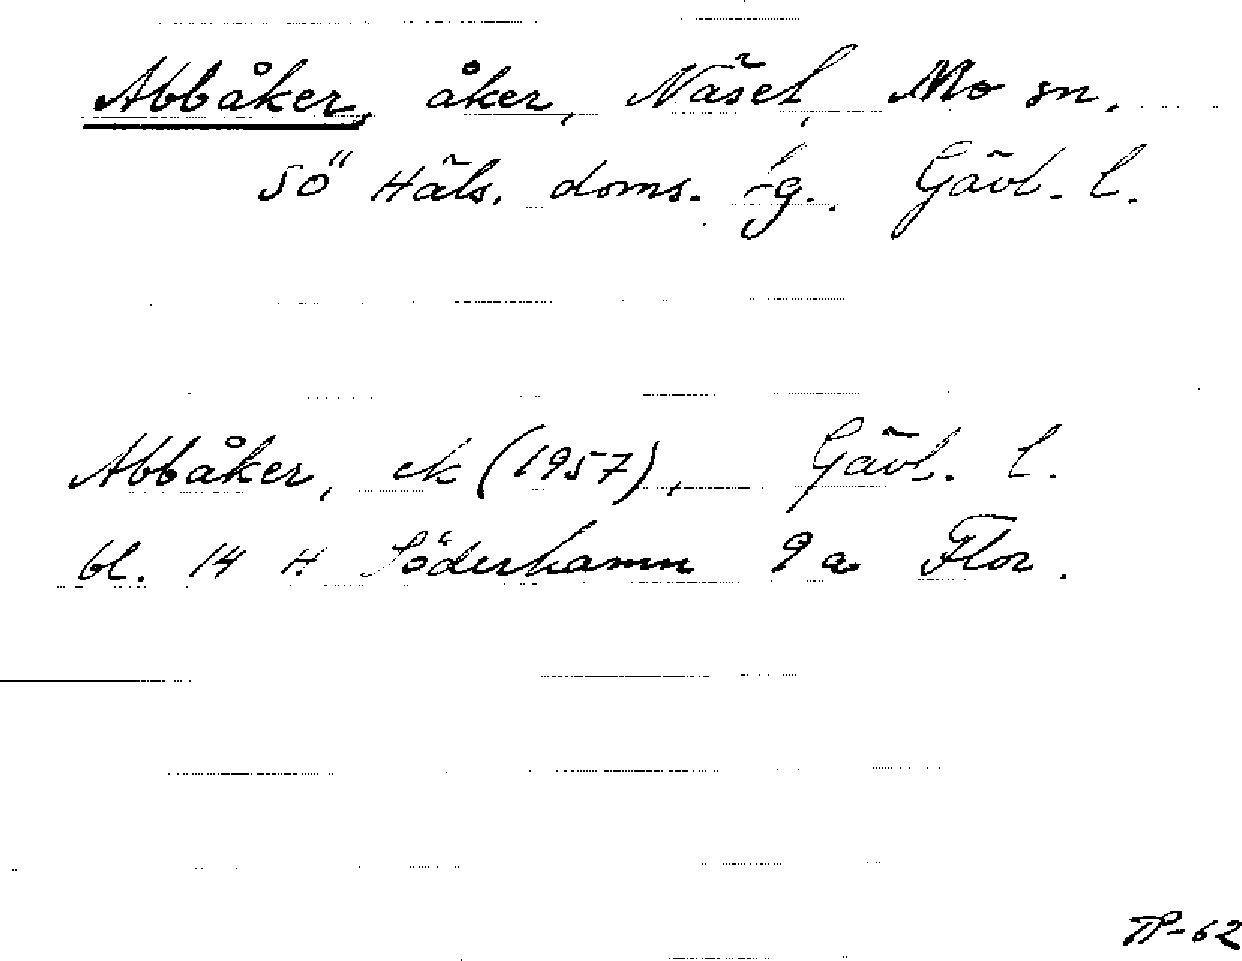 Abbåker, åker, Näsel, Mo sn.
Sö Häls. doms. fg. Gävl. l.
Abbåker, ek (1957), Gävl. l.
bl. 14 H Söderhamn 9 a Flor.
TP-62